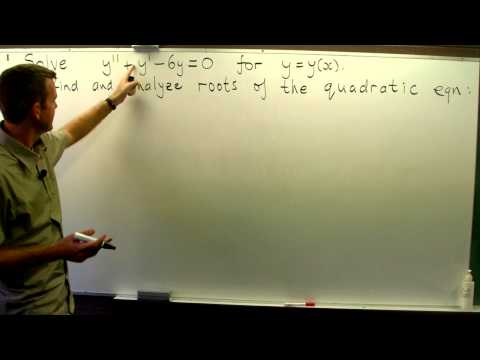 Solve y'' + y' - 6y = 0 for y = y(x).
find and analyze roots of the quadratic eqn: